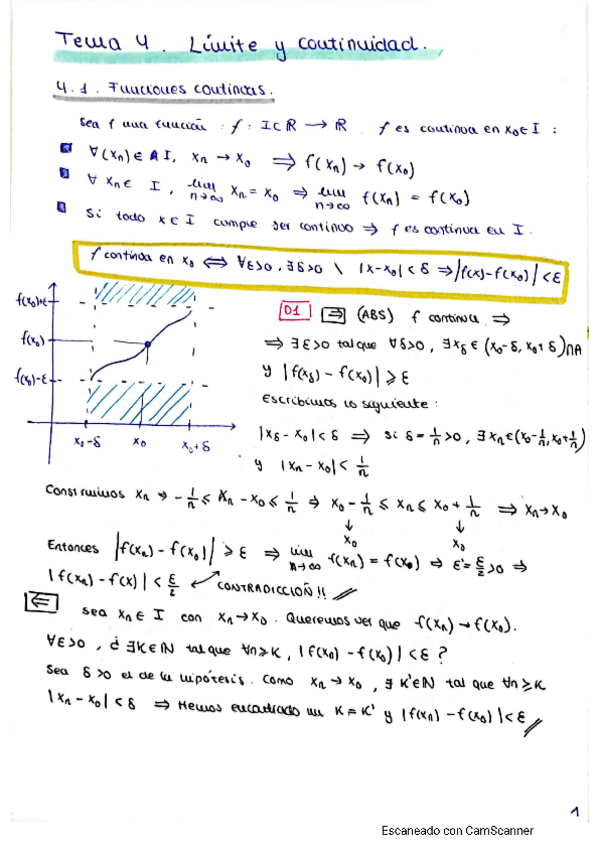 Tema 4. Límite y continuidad.
4.1. Funciones continuas.
Sea f una función : f: I⊂ℝ → ℝ. f es continua en x₀∈I :
∀(xₙ)∈ A I, xₙ → x₀ ⇒ f(xₙ) → f(x₀)
∀ xₙ∈ I, lim n→∞ xₙ = x₀ ⇒ lim n→∞ f(xₙ) = f(x₀)
Si todo x∈I cumple ser continuo ⇒ f es continua en I.
f continua en x₀ ⇔ ∀ε>0, ∃δ>0 \ |x-x₀| < δ ⇒ |f(x)-f(x₀)| < ε
f(x₀)+ε
f(x₀)
f(x₀)-ε
x₀-δ x₀ x₀+δ
D1 ⇒ (ABS) f continua ⇒
⇒ ∃ε>0 tal que ∀δ>0, ∃x_δ ∈ (x₀-δ, x₀+δ)∩A
y |f(x_δ) - f(x₀)| ≥ ε
Escribimos lo siguiente:
|x_δ - x₀| < δ ⇒ si δ = 1/n >0, ∃xₙ∈(x₀-1/n, x₀+1/n)
y |xₙ - x₀| < 1/n
Construimos xₙ → -1/n ≤ xₙ - x₀ ≤ 1/n ⇒ x₀ - 1/n ≤ xₙ ≤ x₀ + 1/n ⇒ xₙ→x₀
↓ ↓
x₀ x₀
Entonces |f(xₙ) - f(x₀)| ≥ ε ⇒ lim n→∞ f(xₙ) = f(x₀) ⇒ ε' = ε/2 >0 ⇒
|f(xₙ) - f(x)| < ε/2 ↙ CONTRADICCIÓN!!
⇐ Sea xₙ∈ I con xₙ→x₀. Queremos ver que f(xₙ)→f(x₀).
∀ε>0, ¿∃K∈ℕ tal que ∀n≥K, |f(xₙ) - f(x₀)| < ε?
Sea δ>0 el de la hipótesis. Como xₙ → x₀, ∃ K'∈ℕ tal que ∀n≥K
|xₙ - x₀| < δ ⇒ Hemos encontrado un K = K' y |f(xₙ) - f(x₀)| < ε
1
Escaneado con CamScanner